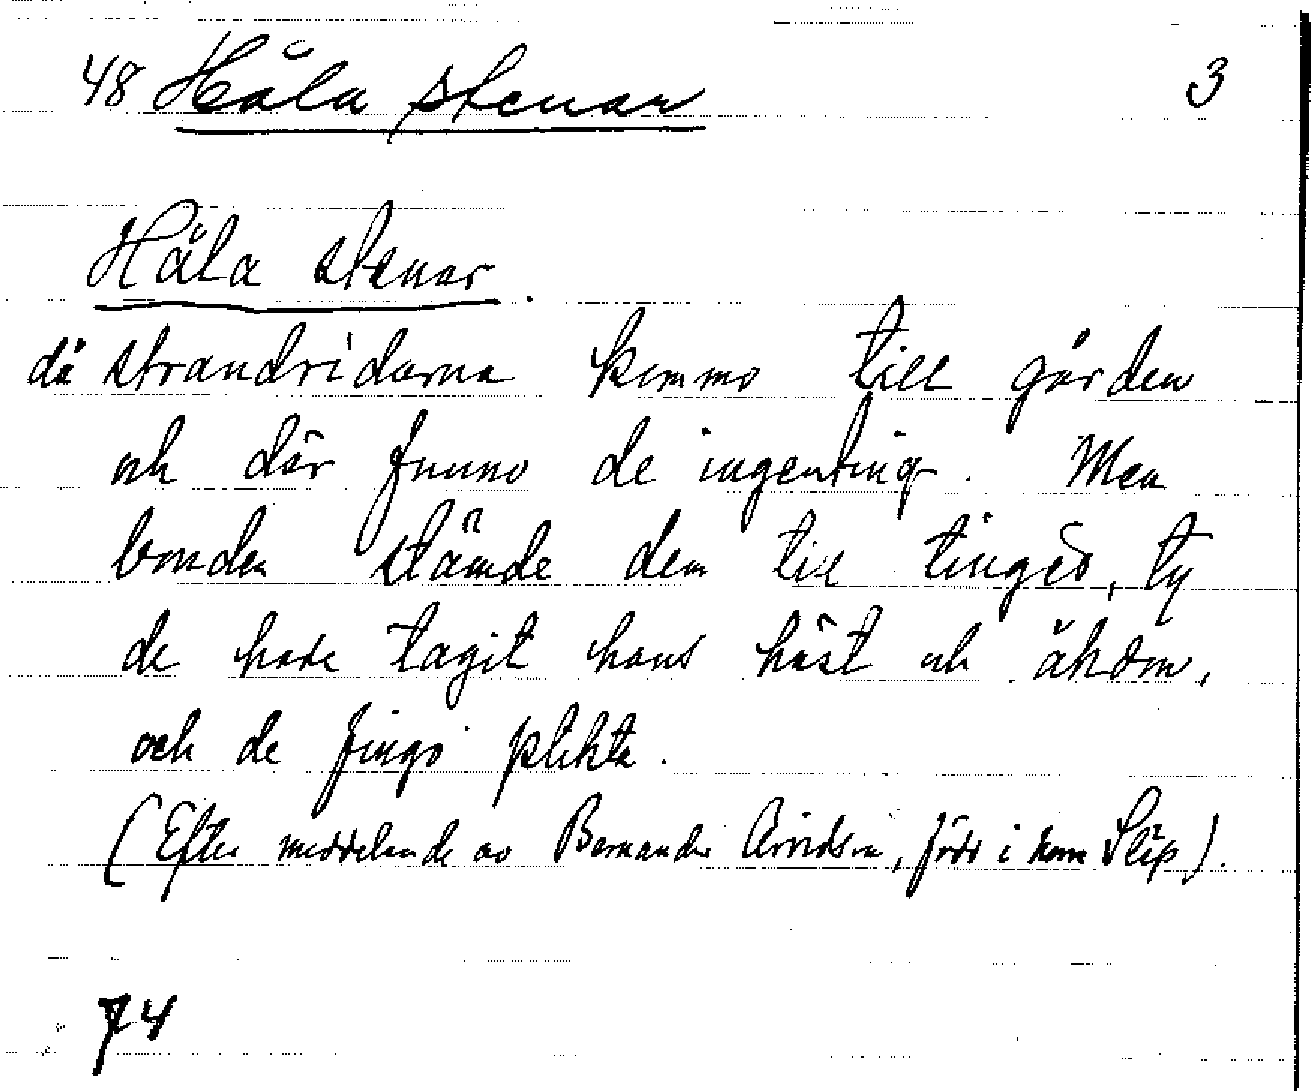 48 Häla stenar 3
Häla stenar.
då strandridarna kommo till gården
och där funno de ingenting. Men
bonden stämde dem till tinget, ty
de hade tagit hans häst och åkdon,
och de fingo plikta.
(Efter meddelande av Bernander Arvidson, född i Släp).
74